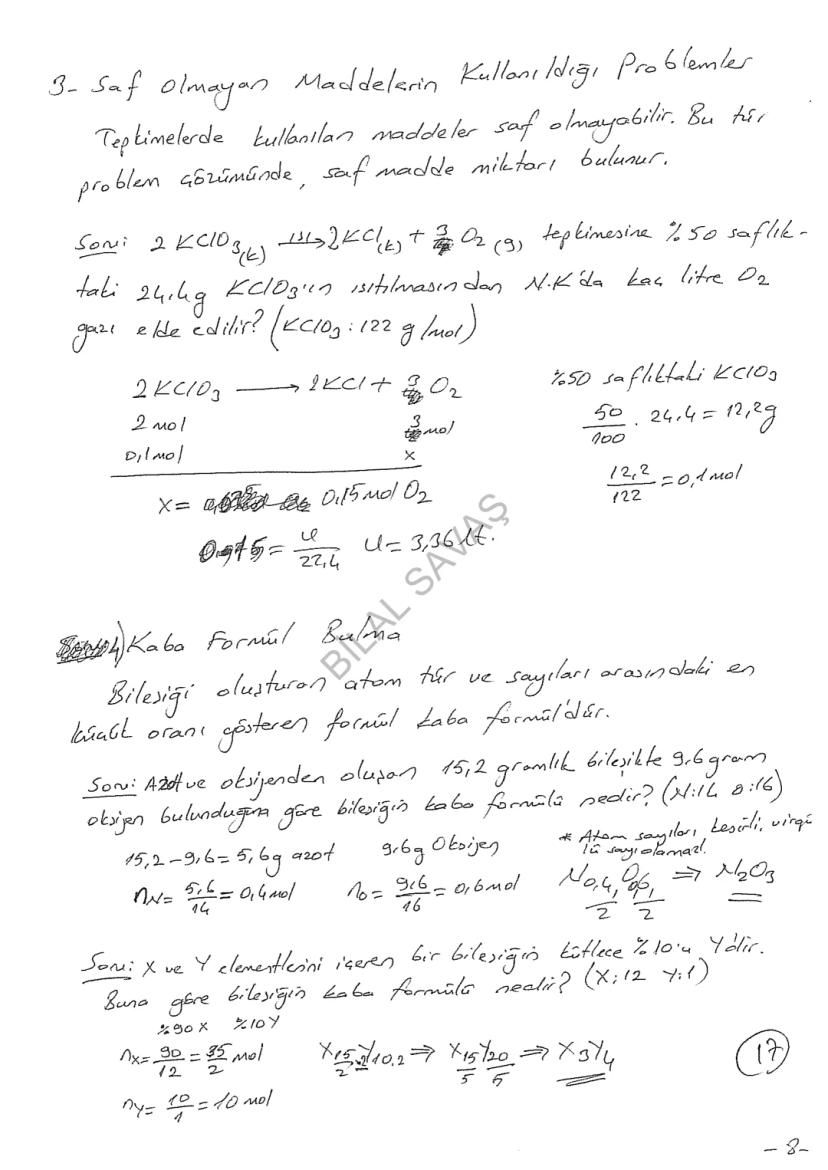 3- Saf Olmayan Maddelerin Kullanıldığı Problemler
Tepkimelerde kullanılan maddeler saf olmayabilir. Bu tür
problem çözümünde, saf madde miktarı bulunur.
Soru: 2 KClO3(k) ısı→ 2KCl(k) + 3 O2(g) tepkimesine %50 saflık-
taki 24,4g KClO3'ın ısıtılmasından N.K'da kaç litre O2
gazı elde edilir? (KClO3 : 122 g/mol)
2KClO3 → 2KCl + 3 O2
%50 saflıktaki KClO3
2 mol 3 mol
50/100 . 24.4 = 12,2g
0,1mol x
12,2/122 = 0,1mol
X = 0,15mol O2
0,15 = V/22,4 V = 3,36 lt.
BİLAL SAVAŞ
4) Kaba Formül Bulma
Bileşiği oluşturan atom tür ve sayıları arasındaki en
küçük oranı gösteren formül kaba formül'dür.
Soru: Azot ve oksijenden oluşan 15,2 gramlık bileşikte 9,6 gram
oksijen bulunduğuna göre bileşiğin kaba formülü nedir? (N:14 O:16)
15,2-9,6=5,6g azot 9,6g Oksijen
* Atom sayıları, kesirli, virgül
lü sayı olamaz!
nN= 5,6/14 = 0,4mol nO= 9,6/16 = 0,6mol N0,4/2 O0,6/2 ⇒ N2O3
Soru: X ve Y elementlerini içeren bir bileşiğin kütlece %10'u Y'dir.
Buna göre bileşiğin kaba formülü nedir? (X:12 Y:1)
%90X %10Y
nX= 90/12 = 15/2 mol X15/2.2 Y10.2 ⇒ X15/5 Y20/5 ⇒ X3Y4
nY= 10/1 = 10 mol
17
-8-